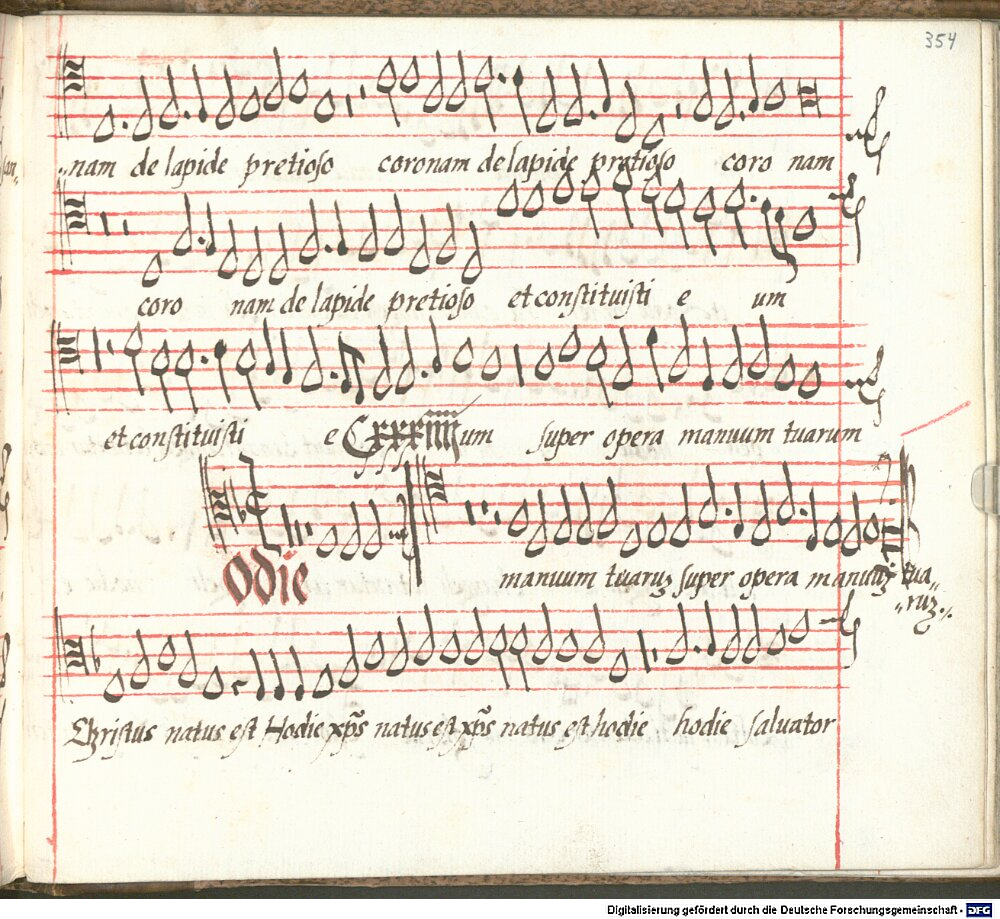 354
nam de lapide pretioso coronam de lapide pretioso coro nam
coro nam de lapide pretioso et constituisti e um
et constituisti e um super opera manuum tuarum
Cxxxiiii
odie manuum tuaruʒ super opera manuuʒ tua„
„ruʒ.
Christus natus est Hodie xp̄s natus est xp̄s natus est hodie hodie saluator
Digitalisierung gefördert durch die Deutsche Forschungsgemeinschaft - DFG